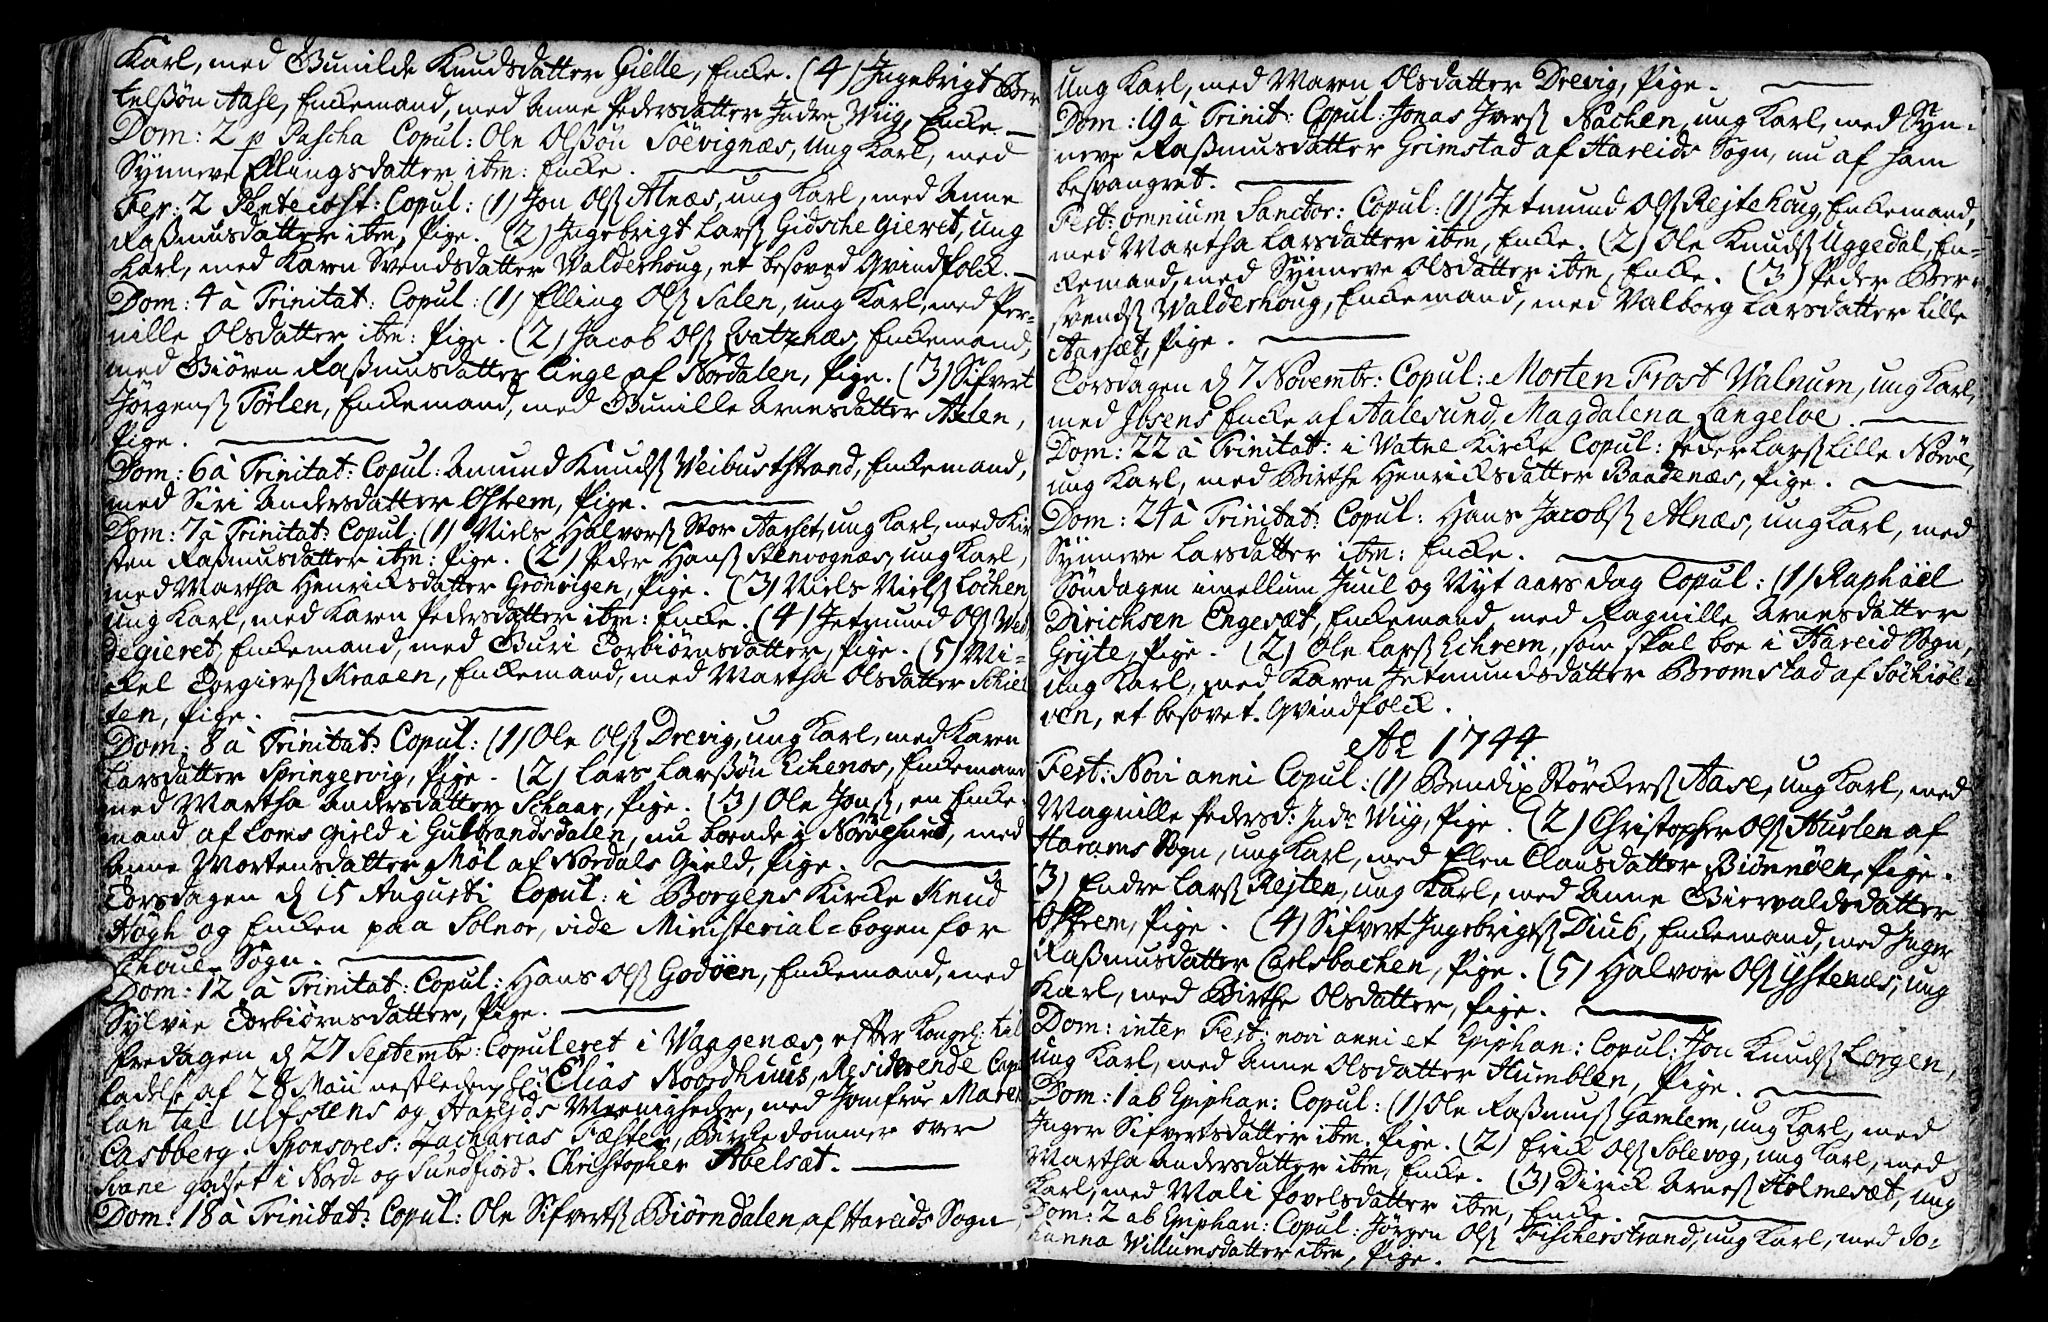 Karl, med Gunilde Knudsdatter Gielle, Encke. (4) Ingebrigt Ber
telsøn Aase, Enckemand, med Anne Pedersdatter Indre Wiig, Encke.
Dom: 2 p Pascha Copul: Ole Olssøn Søevignæs, ung Karl, med
Synneve Ellingsdatter ibm: Encke.
Fer: 2 Pentecost: Copul: (1) Jon Olss Alnæs, ung Karl, med Anne
Rassmusdatter ibm, Pige. (2) Ingebrigt Larss Gidsche gieret, ung
Karl, med Karen Svendsdatter Walderhoug, et besoved Qvindfolck.
Dom: 4 à Trinitat: Copul: (1) Elling Olss Salen, ung Karl, med Per-
nille Olsdatter ibm: Pige. (2) Jacob Olss Qvatznæs, Enckemand,
med Giøren Rassmusdatter Linge af Nordalen, Pige. (3) Sifvert
Jørgenss Førlen, Enckemand, med Gunille Arnesdatter Aalen,
Pige.
Dom: 6 à Trinitat: Copul: Amund Knudss WeibustStrand, Enckemand,
med Siri Andersdatter Østrem, Pige.
Dom: 7 à Trinitat: Copul: (1) Niels Halvorss Stor Aarset, ung Karl, med Kir
sten Rassmusdatter ibm: Pige. (2) Peder Hanss Stenvognæs, ung Karl,
med Martha Henrichsdatter Grønvigen, Pige. (3) Niels Nielss Løchen
ung Karl, med Karen Pedersdatter ibm: Encke. (4) Jetmund Olss Wed
degieret, Enckemand, med Guri Torbiørnsdatter, Pige. (5) Mi-
ckel Torgierss Kraaen, Enckemand, med Martha Olsdatter Schiel
ten, Pige.
Dom: 8 à Trinitat: Copul: (1) Ole Olss Drevig, ung Karl, med Karen
Larsdatter Springervig, Pige. (2) Lars Larssøn Echenos, Enckemand
med Martha Andersdatter Schaar, Pige. (3) Ole Jonss, en Encke-
mand af Loms Gield i Gulbrandsdalen, nu boende i Nørvesund, med
Anne Mortensdatter Møl af Nordals Gield, Pige.
Torsdagen d 15 Augusti Copul: i Borgens Kircke Knud
Høgh og Encken paa Solnør, vide Ministerial-bogen for
Schoue Sogn.
Dom: 12 à Trinitat: Copul: Hans Olss Godøen, Enckemand, med
Sylvie Torbiørnsdatter, Pige.
Fredagen d 27 Septembr: Copuleret i Waggenæs, efter Kongel: til
ladelse af 28 Maii nestleden Elias Noordhuus, Residerende Capel
lan til Ulfstens og Hareids Meenigheder, med Jomfrue Maren
Castberg. Sponsores: Zacharias Fæster, Bircke dommer over
Svane godset i Nord- og Sundfiord. Christopher Abelsæt.
Dom: 18 à Trinitat: Copul: Ole Sifvertss Biørndalen af Hareids Sogn
ung Karl, med Maren Olsdatter Drevig, Pige.
Dom: 19 à Trinit: Copul: Jonas Iverss Nachen, ung Karl, med Syn-
neve Rassmusdatter Grimstad af Hareids Sogn, nu af ham
besvangret.
Fest: omnium Sanctor: Copul: (1) Jetmund Olss Rejtehoug, Enckemand,
med Martha Larsdatter ibm, Encke. (2) Ole Knudss Uggedal, En-
ckemand, med Synneve Olsdatter ibm, Encke. (3) Peder Ber-
svendss Walderhoug, Enckemand, med Valborg Larsdatter Lille
Aarsæt, Pige.
Torsdagen d 7 Novembr: Copul: Morten Frost Walnum, ung Karl,
med Ibsens Encke af Aalesund, Magdalena Langeloe.
Dom: 22 à Trinitat: i Vatne Kircke Copul: Peder Larss Lille Nørve,
ung Karl, med Birthe Henricksdatter Baadenæs, Pige.
Dom: 24 à Trinitat: Copul: Hans Jacobss Alnæs, ung Karl, med
Synneve Larsdatter ibm: Encke.
Søndagen imellum Juul og Nyt aars dag Copul: (1) Raphael
Dirichsen Engesæt, Enckemand, med Ragnille Arnesdatter
Gryte, Pige. (2) Ole Larss Echrem, som skal boe i Hareid Sogn,
ung Karl, med Karen Jetmundsdatter Bromstad af Søchiøl-
ven, et besovet Qvindfolck.
Ao 1744
Fest: Novi anni Copul: (1) Bendix Størckerss Aase, ung Karl, med
Magnille Pedersd: Indr Wiig, Pige. (2) Christopher Olss Hurlen af
Harams Sogn, ung Karl, med Elen Clausdatter Biønnøen, Pige.
3) Endre Larss Rejten, ung Karl, med Anne Giervaldsdatter
Østrem, Pige. (4) Sifvert Ingebrigtss Diub, Enckemand, med Inger
Rassmusdatter Carlsbachen, Pige. (5) Halvor Olss Ystenes, ung
Karl, med Birthe Olsdatter, Pige.
Dom: inter Fest: novi anni et Epiphan: Copul: Jon Knudss Lorgen,
ung Karl, med Anne Olsdatter Humblen, Pige.
Dom: 1 ab Epiphan: Copul: (1) Ole Rassmuss Gamlem, ung Karl, med
Inger Sifvertsdatter ibm, Pige. (2) Erick Olss Solevog, ung Karl, med
Martha Andersdatter ibm, Encke. (3) Dirick Arness Holmesæt, ung
Karl, med Mali Povelsdatter ibm, Encke.
Dom: 2 ab Epiphan: Copul: Jørgen Olss Fischerstrand, ung Karl, med Jo-
hanna Willumsdatter ibm, Pige.